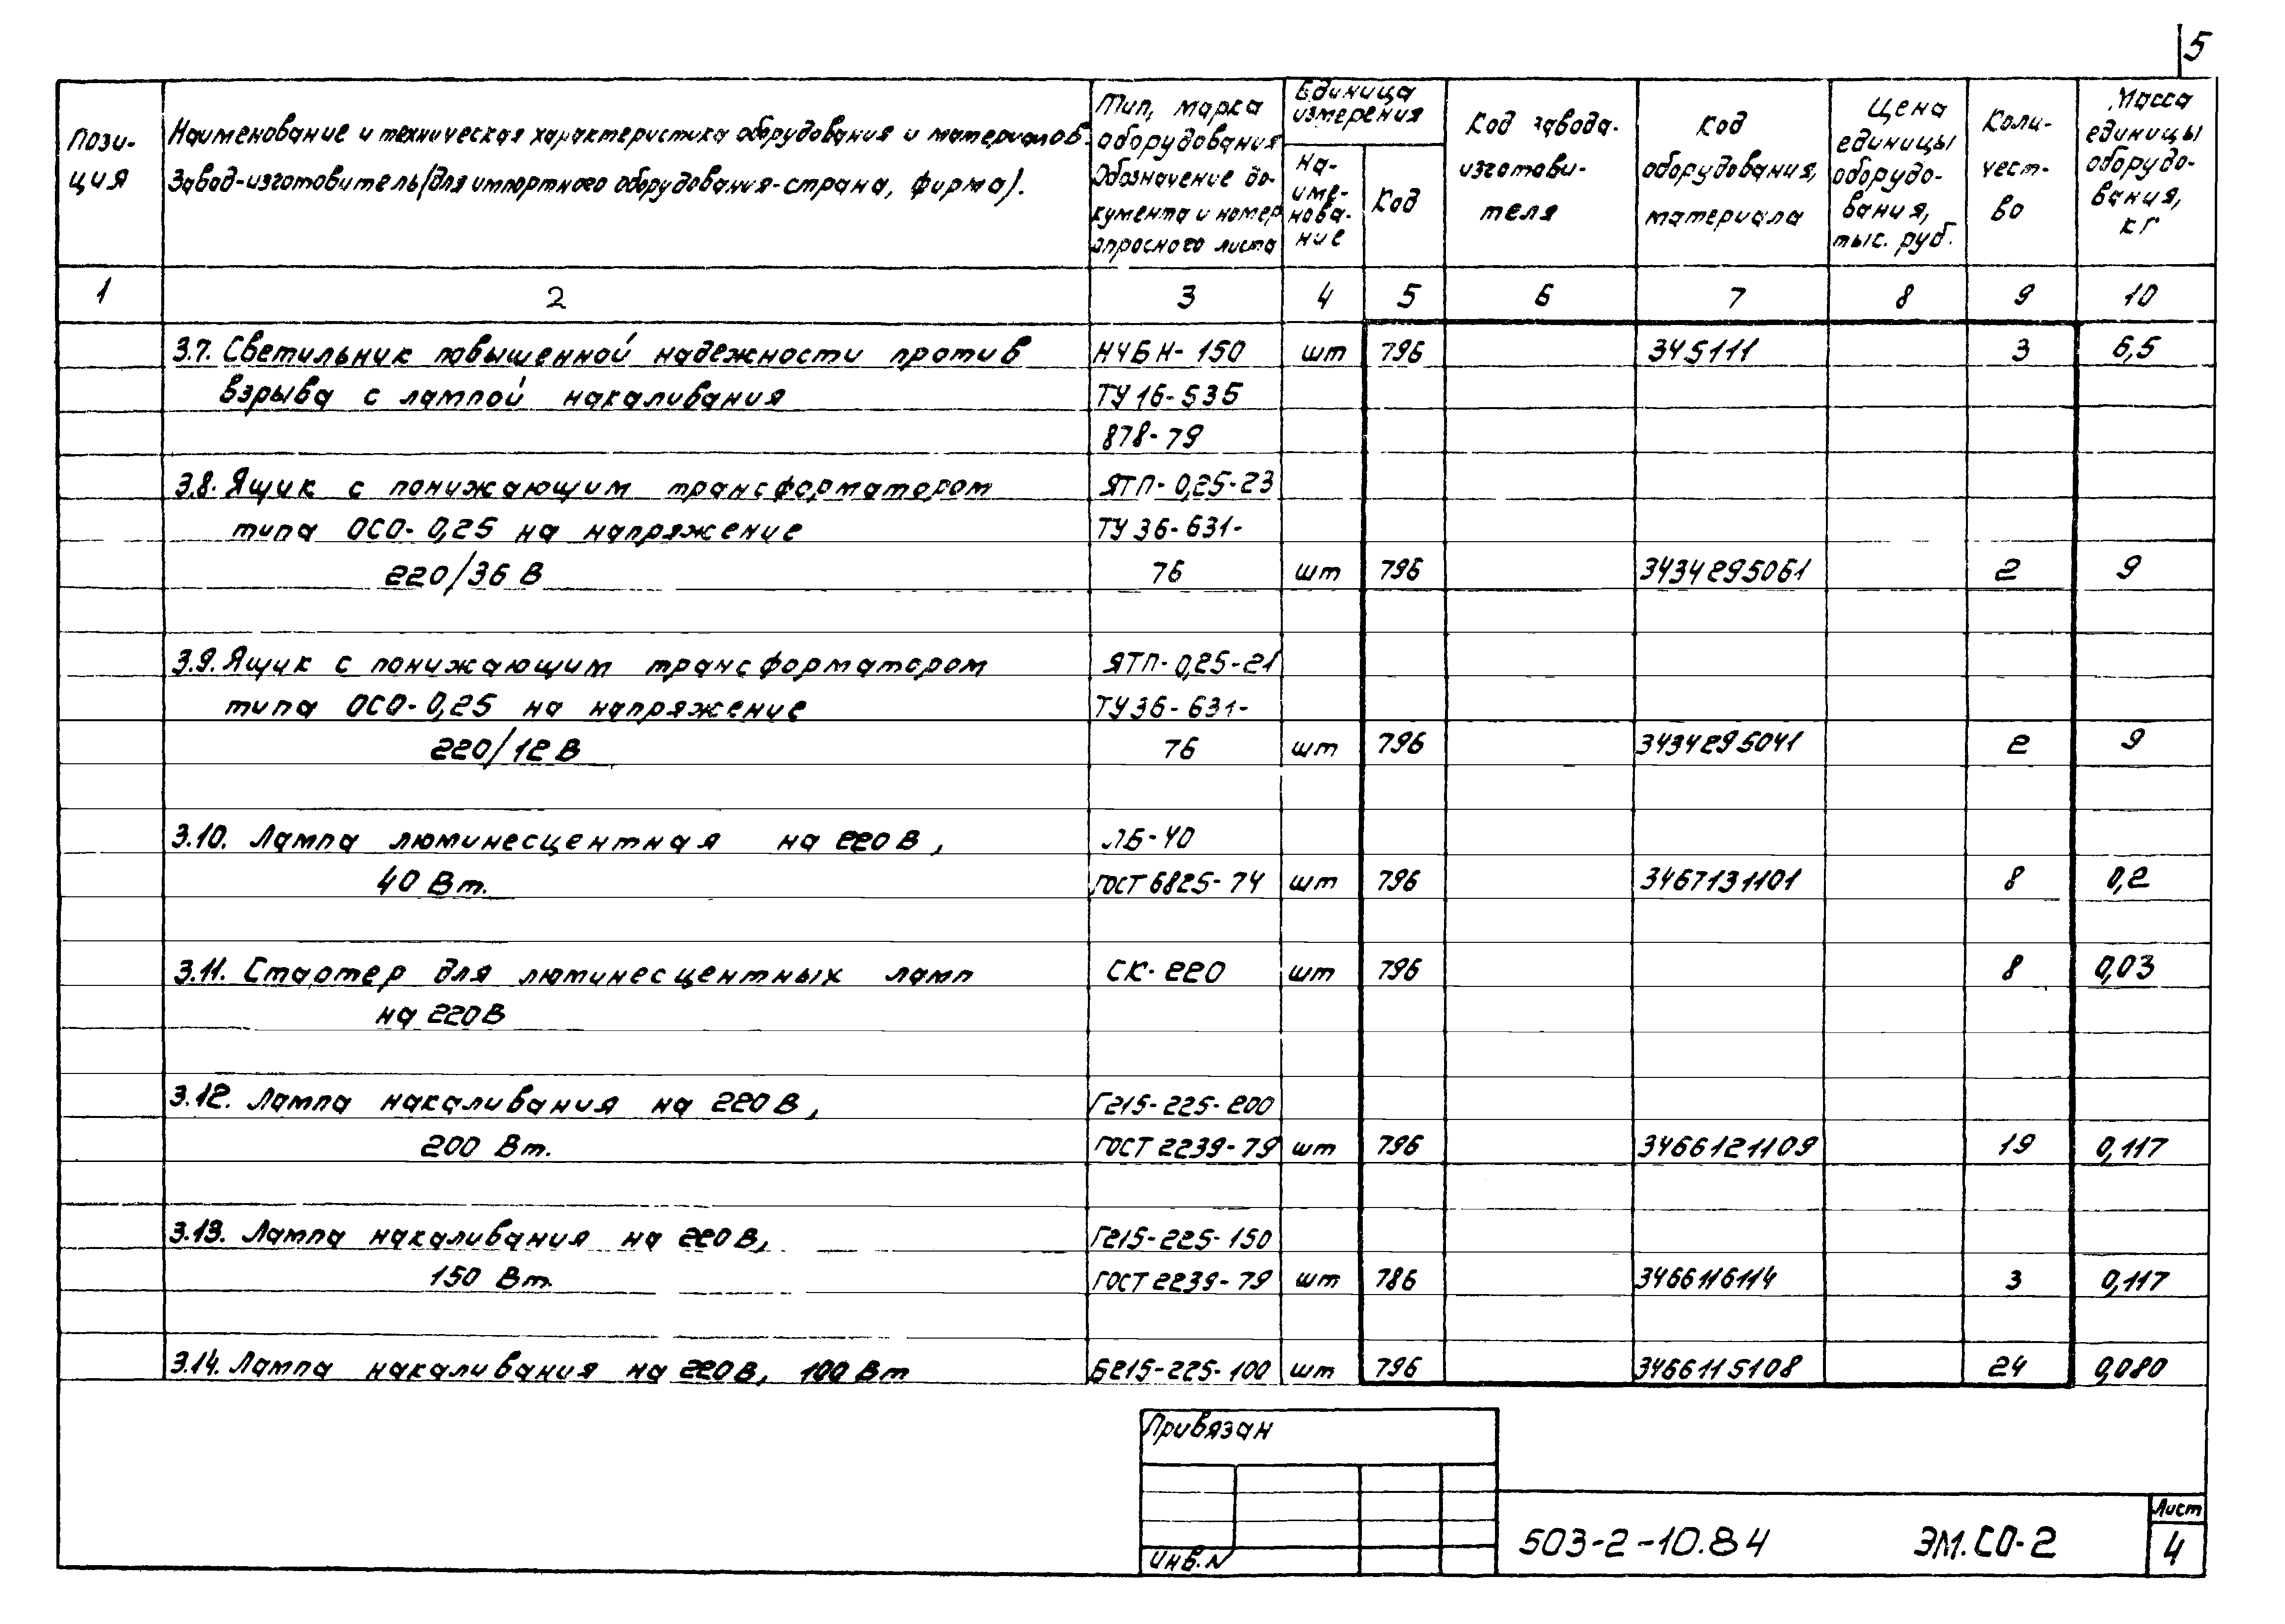 5
Пози-
ция
Наименование и техническая характеристика оборудования и материалов.
Завод-изготовитель (для импортного оборудования-страна, фирма).
Тип, марка
оборудования
Обозначение до-
кумента и номер
опросного листа
Единица
измерения
На-
име-
нова-
ние
Код
Код завода-
изготови-
теля
Код
оборудования,
материала
Цена
единицы
оборудо-
вания,
тыс. руб.
Коли-
чест-
во
Масса
единицы
оборудо-
вания,
кг
1 2 3 4 5 6 7 8 9 10
3.7. Светильник повышенной надежности против НЧБН-150 шт 796 345111 3 6,5
взрыва с лампой накаливания ТУ 16-535
878-79
3.8. Ящик с понижающим трансформатором ЯТП-0,25-23
типа ОСО-0,25 на напряжение ТУ 36-631-
220/36 В 76 шт 796 3434295061 2 9
3.9. Ящик с понижающим трансформатором ЯТП-0,25-21
типа ОСО-0,25 на напряжение ТУ 36-631-
220/12 В 76 шт 796 3434295041 2 9
3.10. Лампа люминесцентная на 220 В, ЛБ-40
40 Вт. ГОСТ 6825-74 шт 796 3467131101 8 0,2
3.11. Стартер для люминесцентных ламп СК-220 шт 796 8 0,03
на 220 В
3.12. Лампа накаливания на 220 В, Г215-225-200
200 Вт. ГОСТ 2239-79 шт 796 3466121109 19 0,117
3.13. Лампа накаливания на 220 В, Г215-225-150
150 Вт. ГОСТ 2239-79 шт 786 3466116114 3 0,117
3.14. Лампа накаливания на 220 В, 100 Вт Б215-225-100 шт 796 3466115108 24 0,080
Привязан
Инв. N
503-2-10.84 ЭМ.СО-2
Лист
4